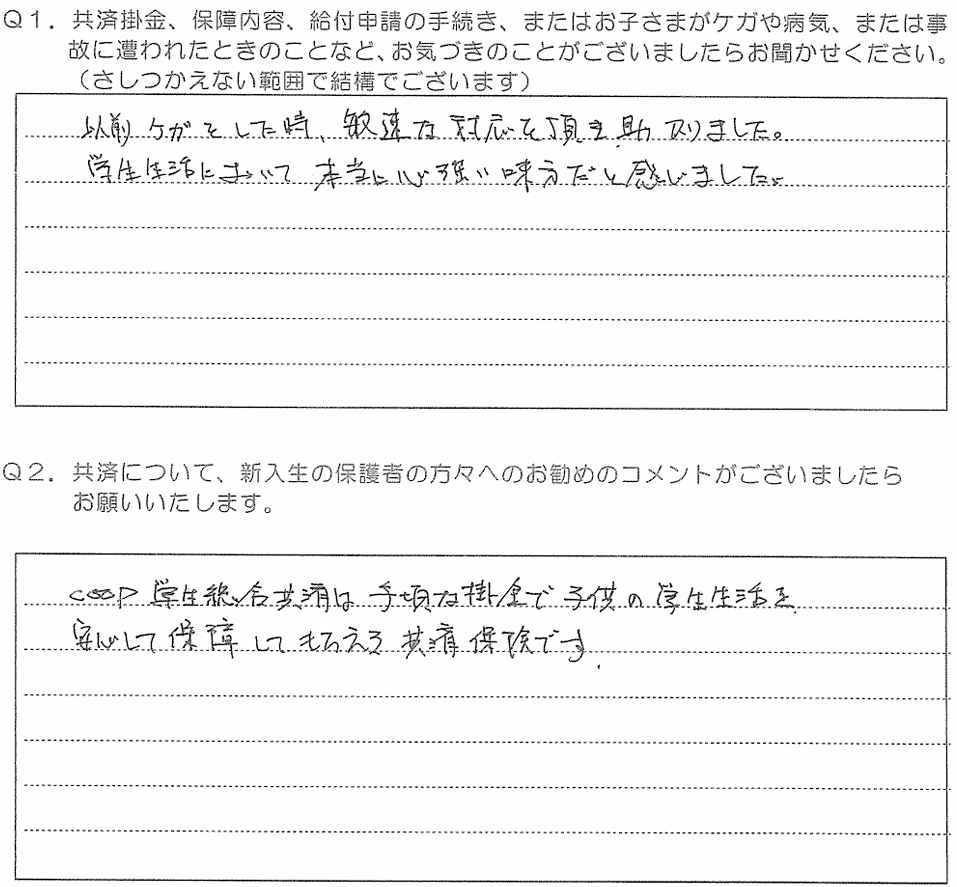 Q1. 共済掛金、保障内容、給付申請の手続き、またはお子さまがケガや病気、または事
故に遭われたときのことなど、お気づきのことがございましたらお聞かせください。
(さしつかえない範囲で結構でございます)
以前ケガをした時、敏速な対応を頂き助かりました。
学生生活において本当に心強い味方だと感じました。
Q2. 共済について、新入生の保護者の方々へのお勧めのコメントがございましたら
お願いいたします。
COOP学生総合共済は手頃な掛金で子供の学生生活を
安心して保障してもらえる共済保険です.